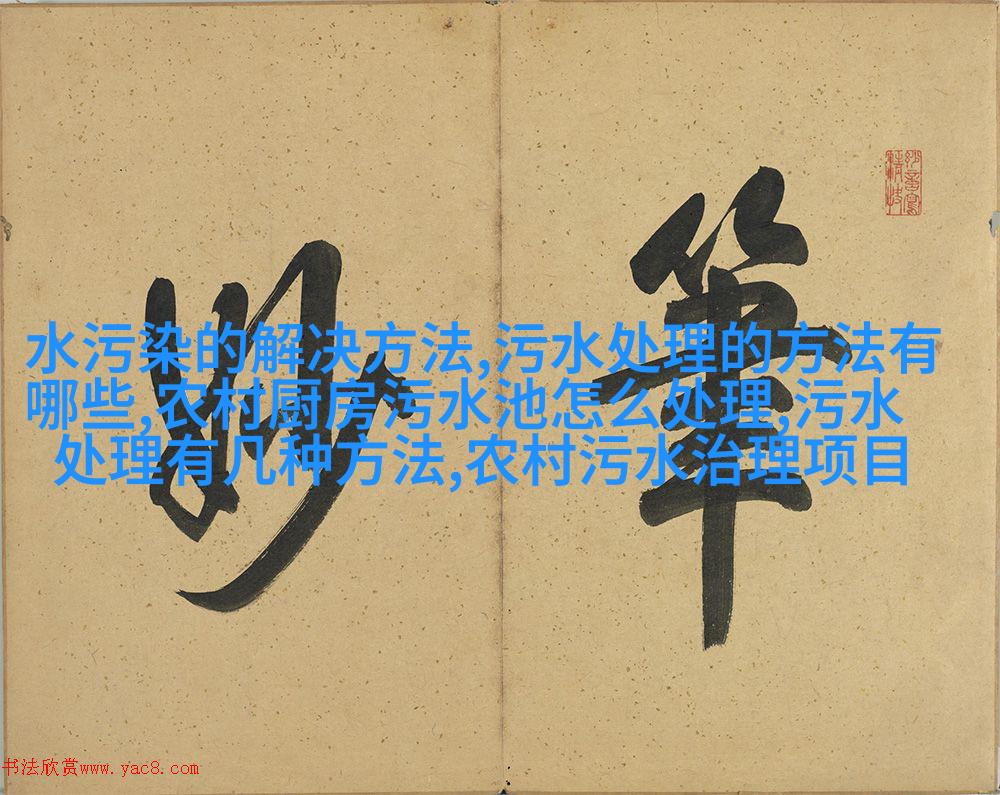 筆
妙
水污染的解决方法,污水处理的方法有
哪些,农村厨房污水池怎么处理,污水
处理有几种方法,农村污水治理项目
书法欣赏www.yac8.com